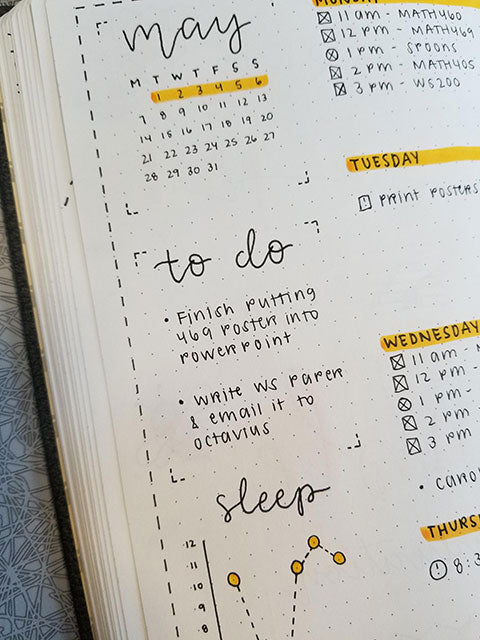 may
M T W T F S S
1 2 3 4 5 6
7 8 9 10 11 12 13
14 15 16 17 18 19 20
21 22 23 24 25 26 27
28 29 30 31
to do
• Finish putting
469 poster into
powerpoint
• write WS paper
& email it to
octavius
sleep
12
11
10
9
8
MONDAY
11 am - MATH460
12 pm - MATH469
1 pm - spoons
2 pm - MATH405
3 pm - WS200
TUESDAY
print posters
WEDNESDAY
11 am -
12 pm -
1 pm -
2 pm -
3 pm
THURS
8:3